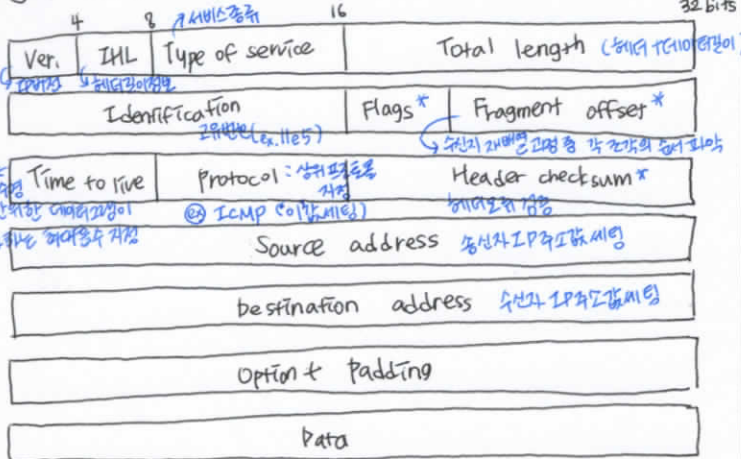 4 8 서비스종류 16 32 bits
Ver. IHL Type of service Total length (헤더+데이터길이)
IP버전 헤더길이정보
Identification Flags* Fragment offset*
고유번호(ex.11e5) 수신지 재배열 과정 중 각 조각의 순서 파악
Time to live Protocol : 상위프로토콜 Header checksum*
지정
ex ICMP (이값세팅) 헤더오류 검증
Source address 송신자IP주소값 세팅
Destination address 수신자 IP주소값세팅
Option + Padding
Data